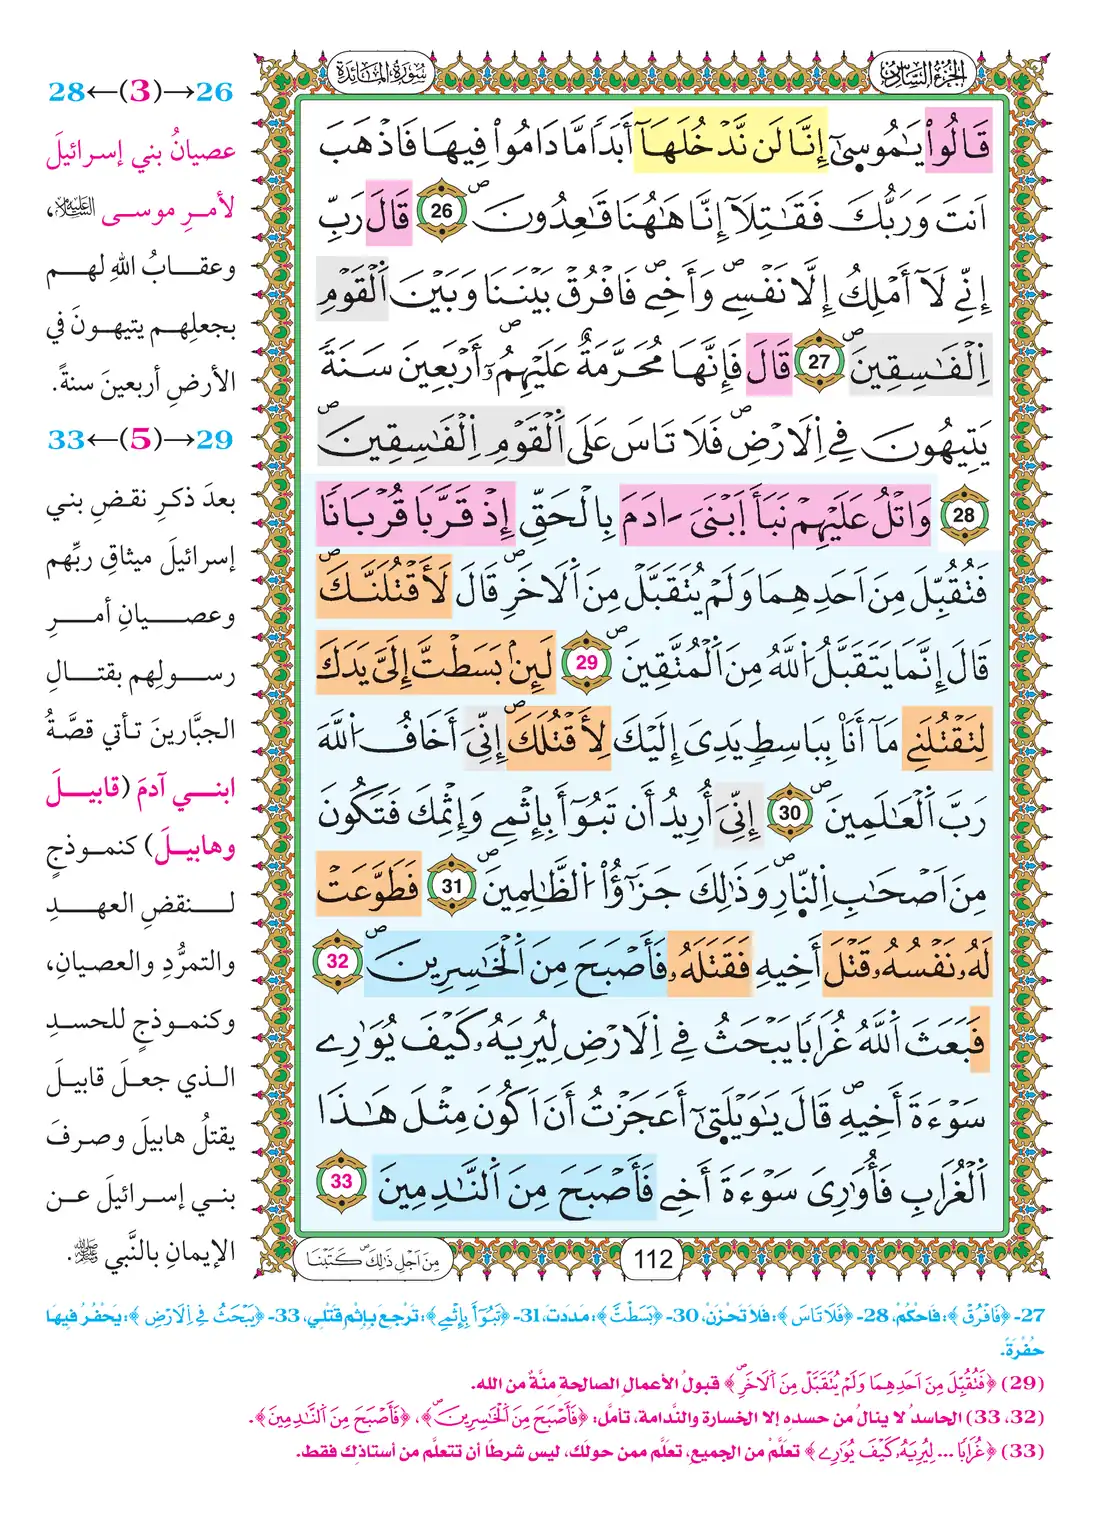 الجزء السادس
سورة المائدة
قَالُواْ يَٰمُوسۭيٰٓ إِنَّا لَن نَّدْخُلَهَآ أَبَداٗ مَّا دَامُواْ فِيهَا فَاذْهَبَ
اَنتَ وَرَبُّكَ فَقَٰتِلَآ إِنَّا هَٰهُنَا قَٰعِدُونَۖ 26 قَالَ رَبِّ
إِنِّے لَآ أَمْلِكُ إِلَّا نَفْسِےۖ وَأَخِےۖ فَافْرُقْ بَيْنَنَا وَبَيْنَ اَلْقَوْمِ
اِلْفَٰسِقِينَۖ 27 قَالَ فَإِنَّهَا مُحَرَّمَةٌ عَلَيْهِمُۥٓۖ أَرْبَعِينَ سَنَةٗ
يَتِيهُونَ فِے اِلَارْضِۖ فَلَا تَاسَ عَلَى اَلْقَوْمِ اِلْفَٰسِقِينَۖ
28 وَاتْلُ عَلَيْهِمْ نَبَأَ اَبْنَيَ ءَادَمَ بِالْحَقِّ إِذْ قَرَّبَا قُرْبَاناٗ
فَتُقُبِّلَ مِنَ اَحَدِهِمَا وَلَمْ يُتَقَبَّلْ مِنَ اَلَاخَرِۖ قَالَ لَأَقْتُلَنَّكَۖ
قَالَ إِنَّمَا يَتَقَبَّلُ اُللَّهُ مِنَ اَلْمُتَّقِينَۖ 29 لَئِنۢ بَسَطتَّ إِلَيَّ يَدَكَ
لِتَقْتُلَنِے مَآ أَنَا۠ بِبَاسِطٖ يَدِيَ إِلَيْكَ لِأَقْتُلَكَۖ إِنِّيَ أَخَافُ اُللَّهَ
رَبَّ اَلْعَٰلَمِينَۖ 30 إِنِّيَ أُرِيدُ أَن تَبُوٓأَ بِإِثْمِے وَإِثْمِكَ فَتَكُونَ
مِنَ اَصْحَٰبِ اِلنّ۪ارِۖ وَذَٰلِكَ جَزَٰٓؤُاْ اُلظَّٰلِمِينَۖ 31 فَطَوَّعَتْ
لَهُۥ نَفْسُهُۥ قَتْلَ أَخِيهِ فَقَتَلَهُۥ فَأَصْبَحَ مِنَ اَلْخَٰسِرِينَۖ 32
فَبَعَثَ اَللَّهُ غُرَاباٗ يَبْحَثُ فِے اِلَارْضِ لِيُرِيَهُۥ كَيْفَ يُوَٰرِے
سَوْءَةَ أَخِيهِۖ قَالَ يَٰوَيْلَت۪يٰٓ أَعَجَزْتُ أَنَ اَكُونَ مِثْلَ هَٰذَا
اَلْغُرَابِ فَأُوَٰرِيَ سَوْءَةَ أَخِے فَأَصْبَحَ مِنَ اَلنَّٰدِمِينَ 33
مِنَ اَجْلِ ذَٰلِكَۖ كَتَبْنَا
112
26→(3)←28
عصيانُ بني إسرائيلَ
لأمرِ موسى عليه السلام،
وعقابُ اللهِ لهم
بجعلِهم يتيهونَ في
الأرضِ أربعينَ سنةً.
29→(5)←33
بعدَ ذكرِ نقضِ بني
إسرائيلَ ميثاقِ ربِّهم
وعصيانِ أمرِ
رسولِهم بقتالِ
الجبَّارينَ تأتي قصَّةُ
ابني آدمَ (قابيلَ
وهابيلَ) كنموذجٍ
لنقضِ العهدِ
والتمرُّدِ والعصيانِ،
وكنموذجٍ للحسدِ
الذي جعلَ قابيلَ
يقتلُ هابيلَ وصرفَ
بني إسرائيلَ عن
الإيمانِ بالنَّبي ﷺ.
27- ﴿فَافْرُقْ﴾: فَاحْكُمْ، 28- ﴿فَلَا تَاسَ﴾: فَلا تَحْزَنْ، 30- ﴿بَسَطتَّ﴾: مَدَدتَ، 31- ﴿تَبُوٓأَ بِإِثْمِے﴾: تَرْجِعَ بِإِثْمِ قَتْلِي، 33- ﴿يَبْحَثُ فِے اِلَارْضِ﴾: يَحْفُرُ فِيهَا
حُفْرَةً.
(29) ﴿فَتُقُبِّلَ مِنَ اَحَدِهِمَا وَلَمْ يُتَقَبَّلْ مِنَ اَلَاخَرِۖ﴾ قبولُ الأعمالِ الصالحةِ مِنَّةٌ من الله.
(32، 33) الحاسدُ لا ينالُ من حسدِه إلا الخسارة والنَّدامة، تأمل: ﴿فَأَصْبَحَ مِنَ اَلْخَٰسِرِينَۖ﴾، ﴿فَأَصْبَحَ مِنَ اَلنَّٰدِمِينَ﴾.
(33) ﴿غُرَاباٗ ... لِيُرِيَهُۥ كَيْفَ يُوَٰرِے﴾ تعلَّمْ من الجميعِ، تعَلَّم ممن حولَك، ليس شرطًا أن تتعلَّم من أستاذِك فقط.